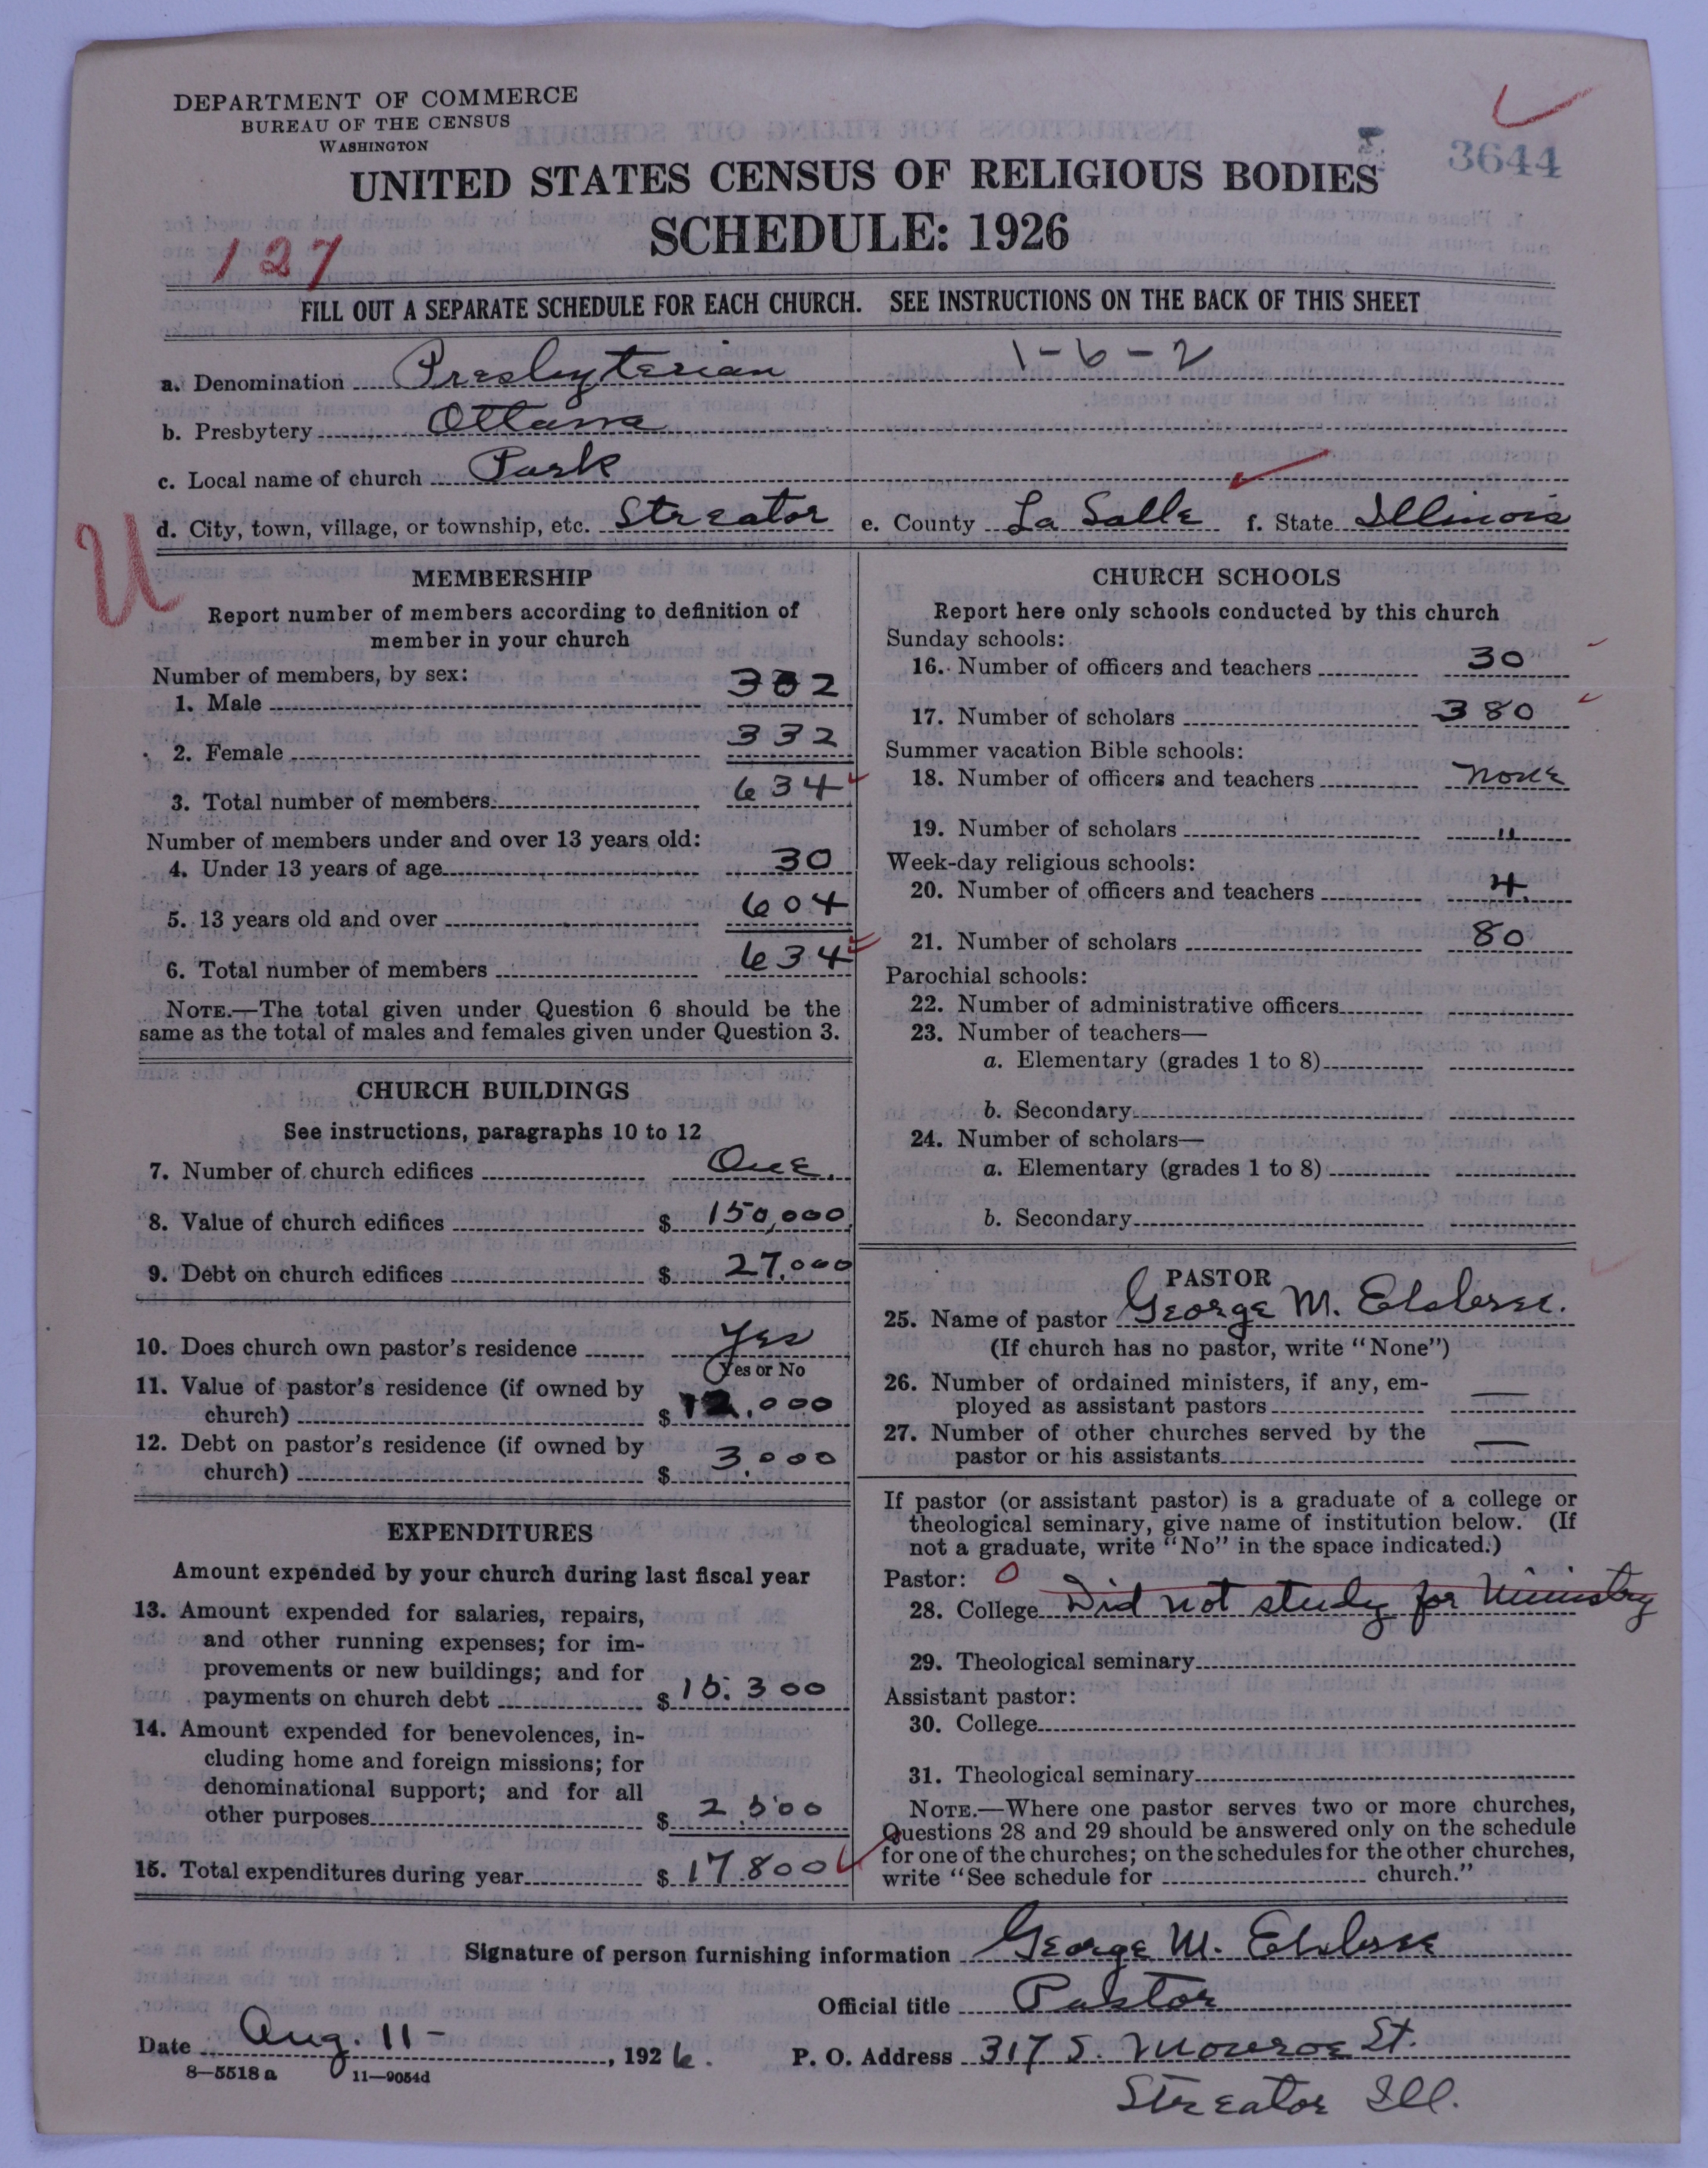 DEPARTMENT OF COMMERCE
BUREAU OF THE CENSUS
WASHINGTON
3644
UNITED STATES CENSUS OF RELIGIOUS BODIES
SCHEDULE: 1926
127
FILL OUT A SEPARATE SCHEDULE FOR EACH CHURCH. SEE INSTRUCTIONS ON THE BACK OF THIS SHEET
1-6-2
a. Denomination Presbyterian
b. Presbytery Ottawa
c. Local name of church Park
d. City, town, village, or township, etc. Streator e. County La Salle f. State Illinois
U
MEMBERSHIP
Report number of members according to definition of
member in your church
Number of members, by sex:
1. Male 302
2. Female 332
3. Total number of members 634
Number of members under and over 13 years old:
4. Under 13 years of age 30
5. 13 years old and over 604
6. Total number of members 634
NOTE.—The total given under Question 6 should be the
same as the total of males and females given under Question 3.
CHURCH BUILDINGS
See instructions, paragraphs 10 to 12
7. Number of church edifices One.
8. Value of church edifices $ 150,000
9. Debt on church edifices $ 27.000
10. Does church own pastor's residence Yes
Yes or No
11. Value of pastor's residence (if owned by
church) $ 12.000
12. Debt on pastor's residence (if owned by
church) $ 3.000
EXPENDITURES
Amount expended by your church during last fiscal year
13. Amount expended for salaries, repairs,
and other running expenses; for im-
provements or new buildings; and for
payments on church debt $ 15.300
14. Amount expended for benevolences, in-
cluding home and foreign missions; for
denominational support; and for all
other purposes $ 2.500
15. Total expenditures during year $ 17.800
CHURCH SCHOOLS
Report here only schools conducted by this church
Sunday schools:
16. Number of officers and teachers 30
17. Number of scholars 380
Summer vacation Bible schools:
18. Number of officers and teachers none
19. Number of scholars "
Week-day religious schools:
20. Number of officers and teachers 4.
21. Number of scholars 80
Parochial schools:
22. Number of administrative officers
23. Number of teachers—
a. Elementary (grades 1 to 8)
b. Secondary
24. Number of scholars—
a. Elementary (grades 1 to 8)
b. Secondary
PASTOR
25. Name of pastor George M. Elsbree.
(If church has no pastor, write "None")
26. Number of ordained ministers, if any, em-
ployed as assistant pastors —
27. Number of other churches served by the
pastor or his assistants —
If pastor (or assistant pastor) is a graduate of a college or
theological seminary, give name of institution below. (If
not a graduate, write "No" in the space indicated.)
Pastor: 0
28. College Did not study for Ministry
29. Theological seminary
Assistant pastor:
30. College
31. Theological seminary
NOTE.—Where one pastor serves two or more churches,
Questions 28 and 29 should be answered only on the schedule
for one of the churches; on the schedules for the other churches,
write "See schedule for church."
Signature of person furnishing information George M. Elsbree
Official title Pastor
Date Aug. 11-, 1926. P. O. Address 317 S. Monroe St.
8—5518 a 11—9054d
Streator Ill.